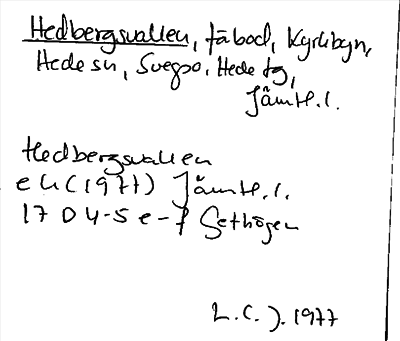 Hedbergsvallen, fäbod, Kyrkbyn,
Hede sn, Svegso, Hede tg,
Jämtl. l.
Hedbergsvallen
ek (1977) Jämtl. l.
17 D 4-5 e-f Gethögen
L.C.J. 1977